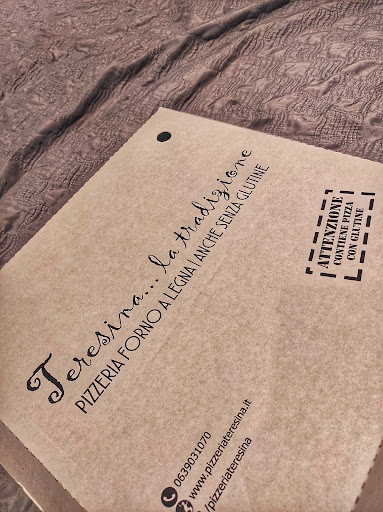 Teresina... la tradizione
PIZZERIA FORNO A LEGNA | ANCHE SENZA GLUTINE
ATTENZIONE
CONTIENE PIZZA
CON GLUTINE
0639031070
www.pizzeriateresina.it
/pizzeriateresina